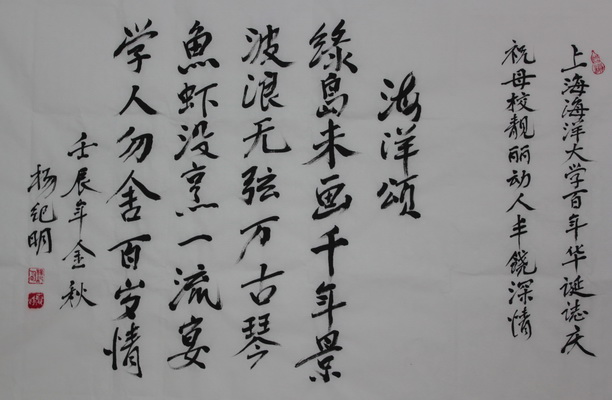 上海海洋大学百年华诞誌庆
祝母校靓丽动人半饒深情
海洋颂
緑島未画千年景
波浪无弦万古琴
魚虾没烹一流宴
学人勿舍百岁情
壬辰年金秋
杨纪明